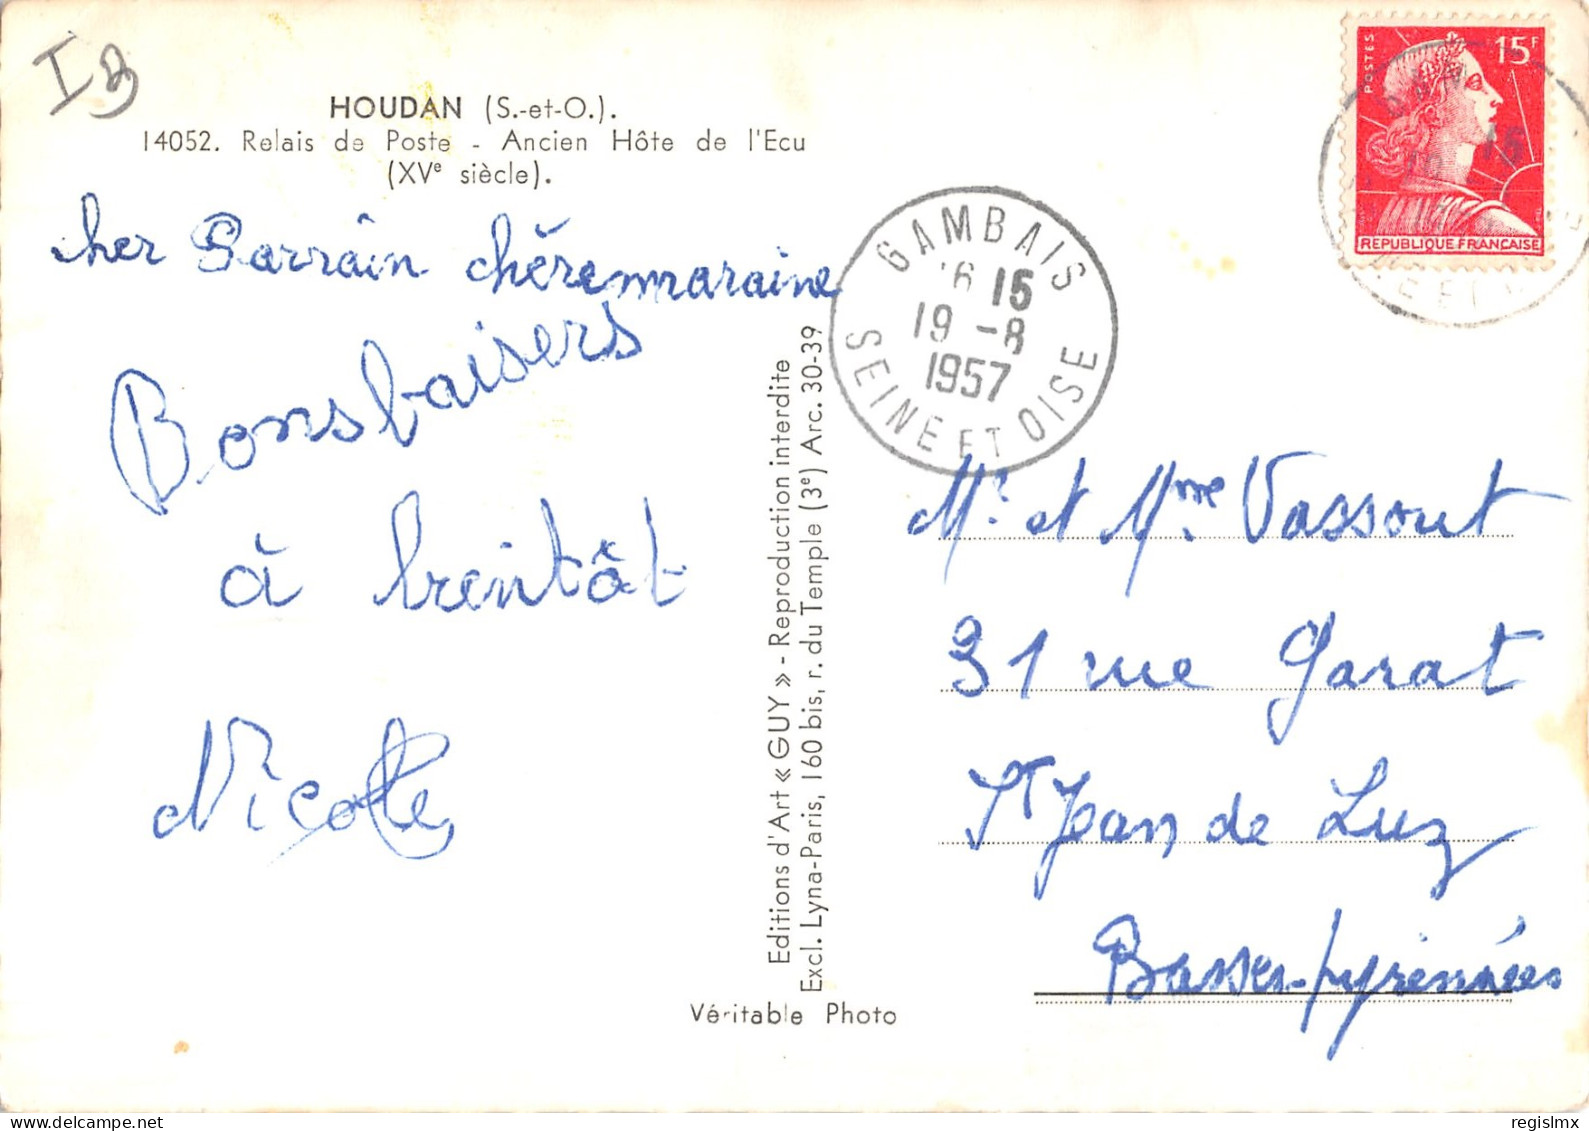 I B
HOUDAN (S.-et-O.).
14052. Relais de Poste - Ancien Hôte de l'Ecu
(XVe siècle).
cher Parrain chère marraine
Bons baisers
à bientôt
Nicole
Editions d'Art « GUY » - Reproduction interdite
Excl. Lyna-Paris, 160 bis, r. du Temple (3e) Arc. 30-39
Véritable Photo
POSTES
15F
REPUBLIQUE FRANÇAISE
GAMBAIS
16 15
19 -8
1957
SEINE ET OISE
Mr. et Mme Vassout
31 rue Garat
St Jean de Luz
Basses-pyrennées
delcampe.net
regislmx